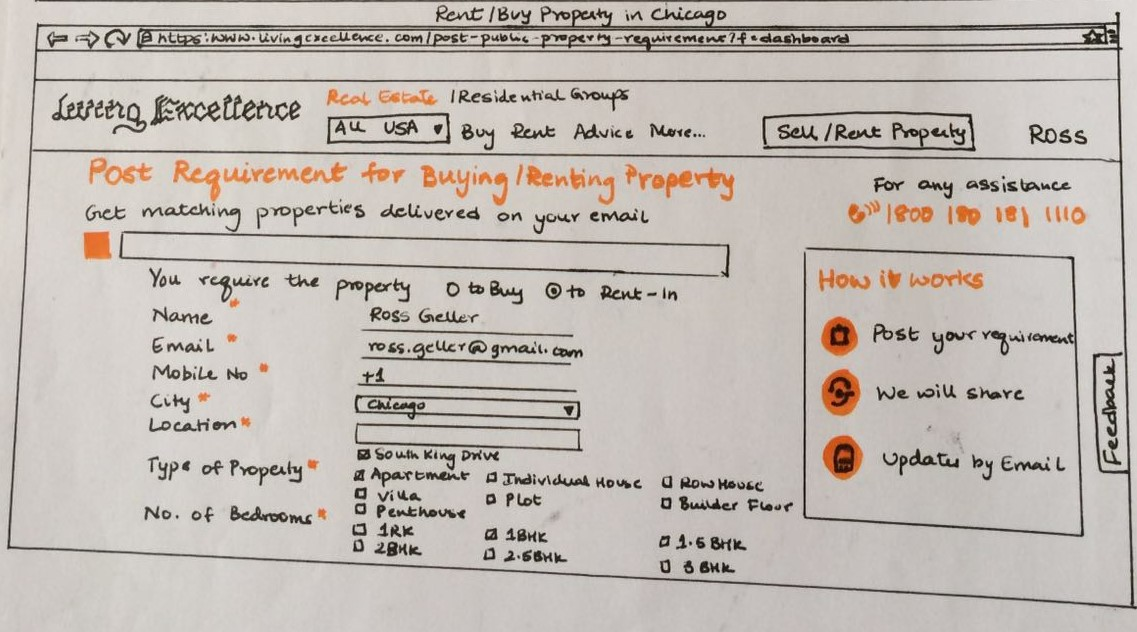 Rent/Buy Property in Chicago
https:www.livingexcellence.com/post-public-property-requirement?f=dashboard
Living Excellence
Real Estate /Residential Groups
All USA Buy Rent Advice More... Sell/Rent Property ROSS
Post Requirement for Buying/Renting Property
Get matching properties delivered on your email
For any assistance
1800 180 181 1110
You require the property to Buy to Rent-In
Name * Ross Geller
Email * ross.geller@gmail.com
Mobile No * +1
City * Chicago
Location *
South King Drive
Type of Property * Apartment Individual House Row House
Villa Plot Builder Flour
Penthouse
No. of Bedrooms * 1RK 1BHK 1.5 BHK
2BHK 2.5BHK 3 BHK
How it works
Post your requirement
We will share
Updates by Email
Feedback